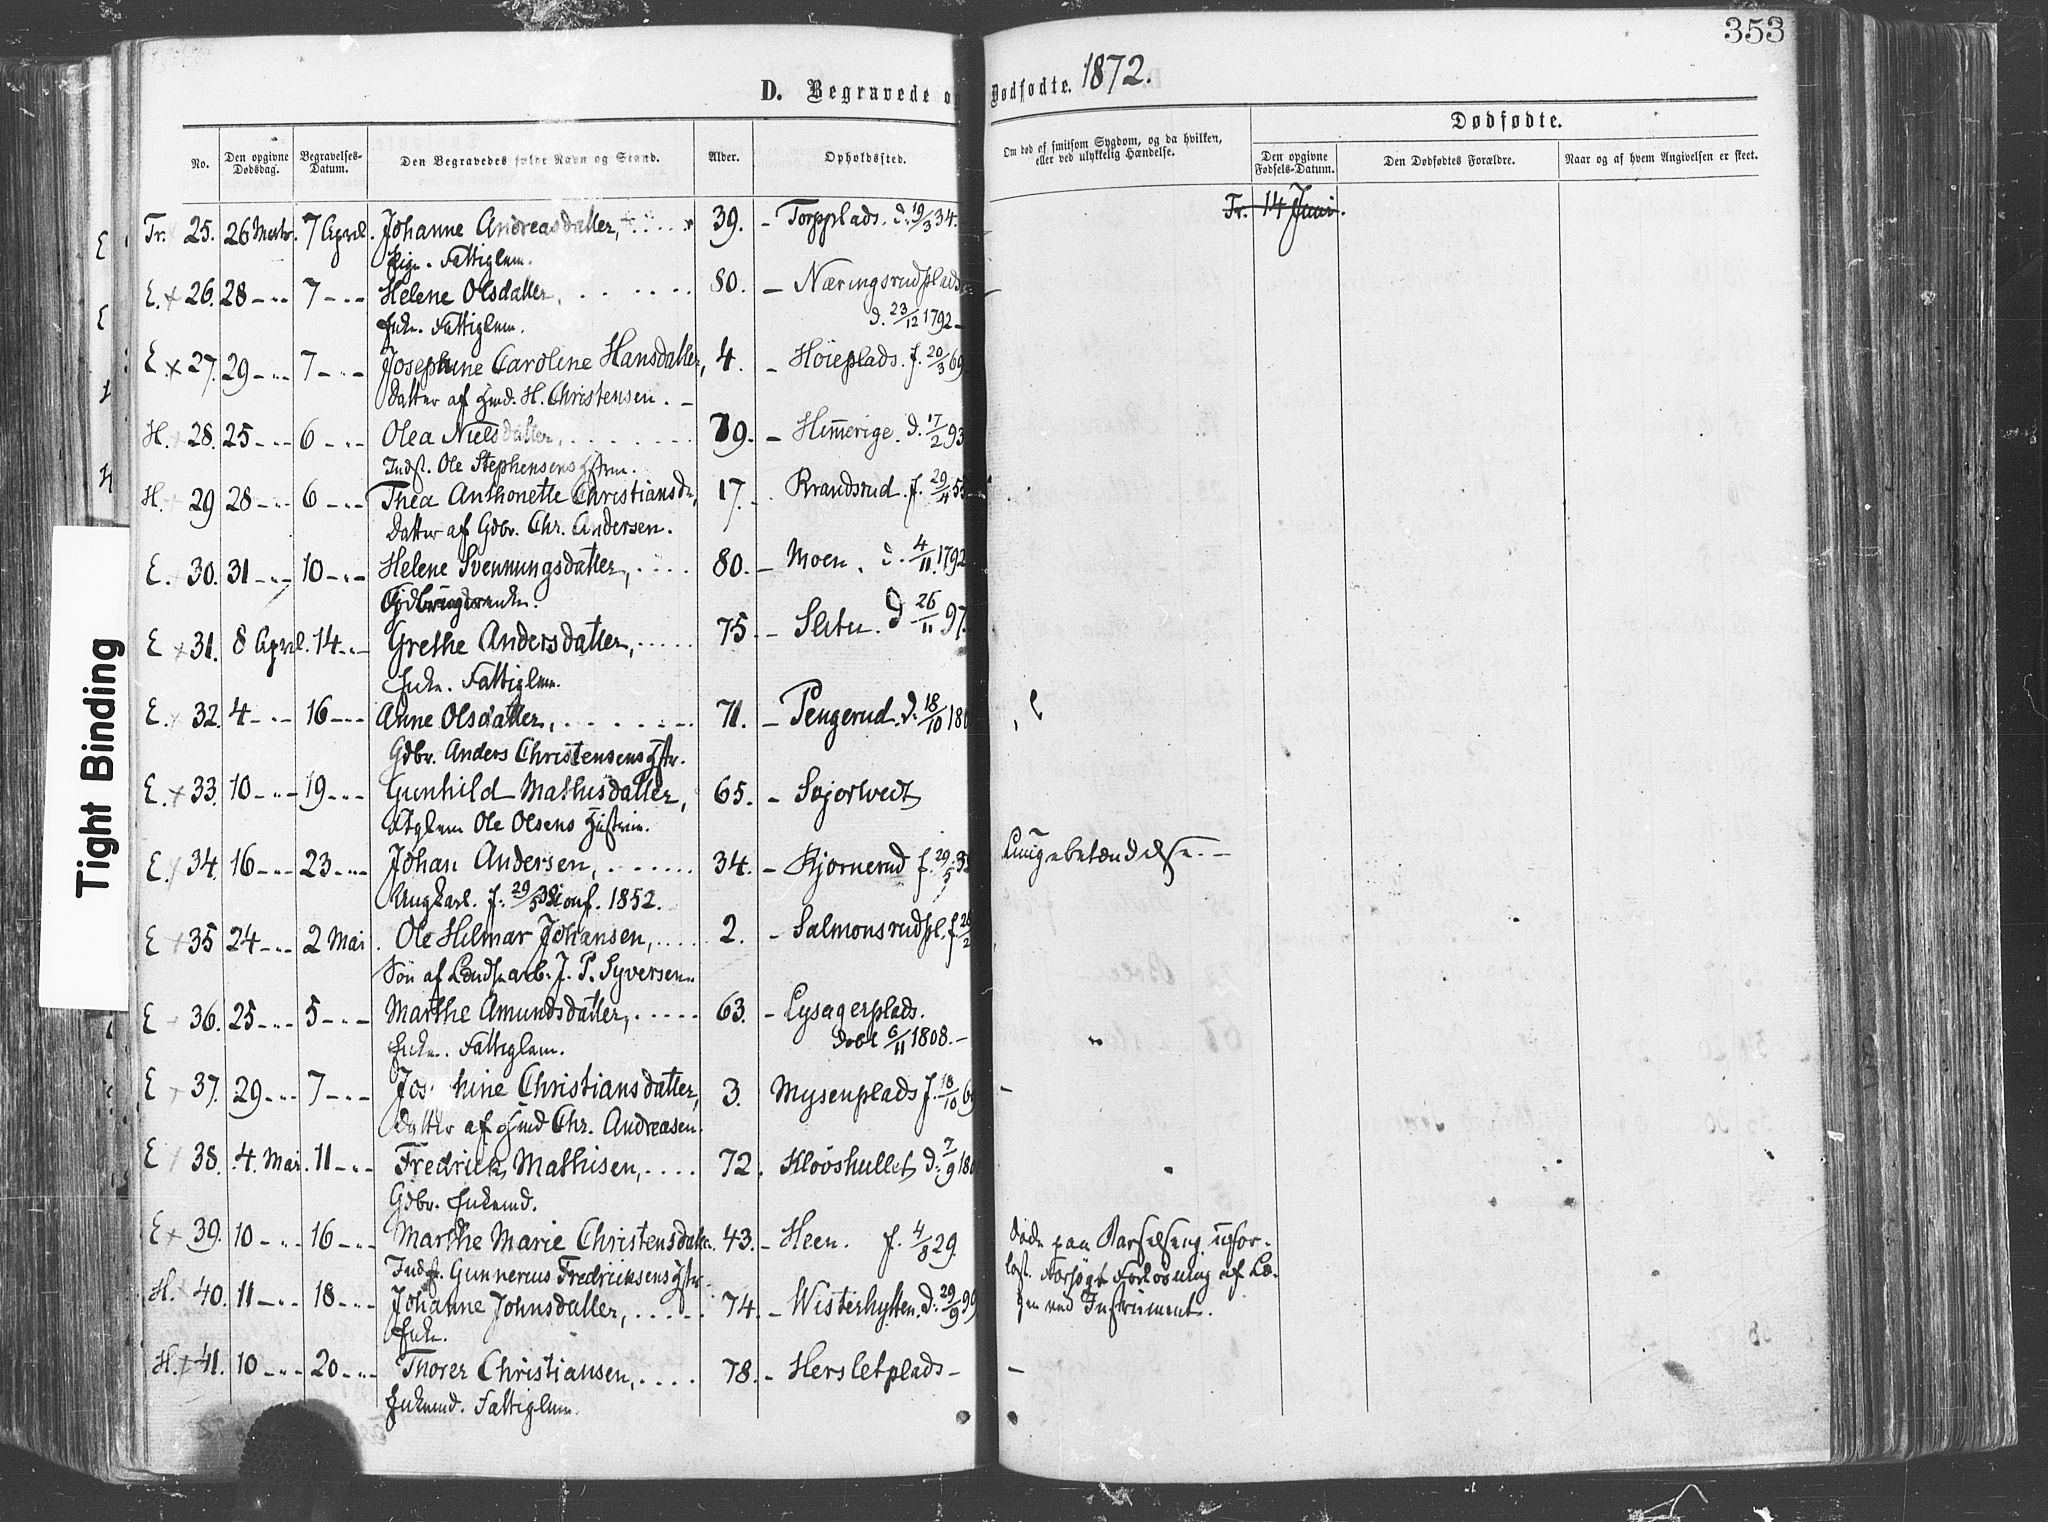 353
D. Begravede og Dødfødte. 1872.
No. Den opgivne Dødsdag. Begravelses-Datum. Den Begravedes fulde Navn og Stand. Alder. Opholdssted. Om død af smitsom Sygdom, og da hvilken, eller ved ulykkelig Hændelse.
Dødfødte.
Den opgivne Fødsels-Datum. Den Dødfødtes Forældre. Naar og af hvem Angivelsen er skeet.
Tr. 14 Juni.
Tr. 25. 26 Marts. 7 April. Johanne Andreasdatter, 39. - Torpplads. d. 19/3 34.
Pige. Fattiglem.
E. x 26. 28 - „ - 7 - „ - Helene Olsdatter, 80. - Næringsrudplads
Enke. Fattiglem. d. 23/12 1792 -
E. x 27. 29 - „ - 7 - „ - Josephine Caroline Hansdatter, 4. - Høieplads. f. 20/3 69
Datter af Hmd. H. Christensen. -
H. 28. 25 - „ - 6 - „ - Olea Nielsdatter, 79. - Himmerige. d. 17/2 93
Indst. Ole Stephensens Hstru.
H. 29 28 - „ - 6 - „ - Thea Anthonette Christiansd., 17. - Brandsrud. f. 29/4 55
Datter af Gdbr. Chr. Andersen.
E. 30. 31 - „ - 10 - „ - Helene Svenningsdatter, 80. - Moen. d. 4/11 1792
E x 31. 8 April. 14 - „ - Grethe Andersdatter, 75. - Sletu. d. 26/11 97.
Enke. Fattiglem.
E. x 32. 4 - „ - 16 - „ - Anne Olsdatter, 71. - Pengerud. d. 18/10 180
Gdbr. Anders Christensens Hstr.
E. x 33. 10 - „ - 19 - „ - Gunhild Mathisdatter, 65. -
Ftglem Ole Olsens Hustru.
E. 34. 16 - „ - 23 - „ - Johan Andersen, 34. - Bjørnerud f. 29/5 38 Lungebetændelse. -
Ungkarl. f. 29/5 38 Conf. 1852.
E x 35 24 - „ - 2 Mai. Ole Hilmar Johansen, 2. - Salmonsrudpl. f. 26/2
Søn af Landh.arb. J. P. Syversen.
E 36. 25 - „ - 5 - „ - Marthe Amundsdatter, 63. - Lysagerplads.
Enke. Fattiglem. døbt 6/11 1808. -
E 37. 29 - „ - 7 - „ - Josephine Christiansdatter, 3. Mysenplads f. 18/10 69 -
Datter af Hmd Chr. Andreasen.
E 38. 4. Mai. 11 - „ - Fredrick Mathisen, 72. Kløvshullet d. 7/9 180
Gdbr. Enkemd.
E x 39. 10 - „ - 16 - „ - Marthe Marie Christensdatter. 43. - Heen. f. 4/8 29 Døde paa Barselseng, ufor-
Indst. Gunnerius Fredricksens Hstr. løst. Forsøgt Forløsning af Læ-
H. x 40. 11 - „ - 18 - „ - Johanne Johnsdatter, 74. - Wisterhytten. d. 29/9 99 gen ved Instrument.
Enke.
H. x 41. 10 - „ - 20 - „ - Thorer Christiansen, 78. - Hersletplads - -
Enkemd. Fattiglem.
Tight Binding